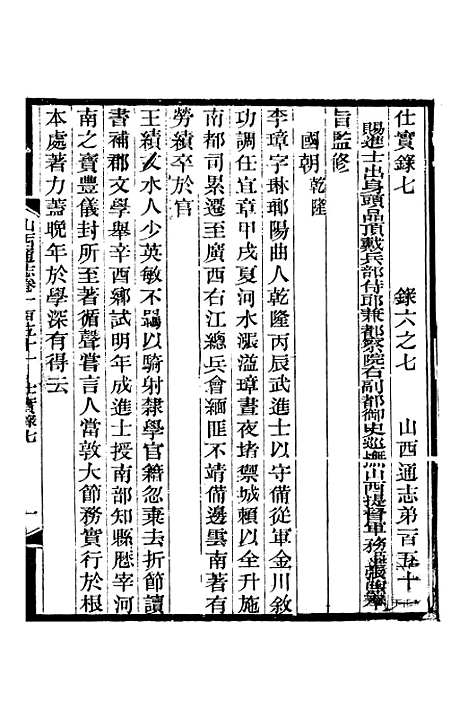 仕實錄七 錄六之七 山西通志第一百五十一
賜進士出身頭品頂戴兵部侍郎兼都察院右副都御史巡撫山西提督軍務張煦奉
旨監修
國朝乾隆
李璋字琳瑯陽曲人乾隆丙辰武進士以守備從軍金川敘
功調任宜章甲戌夏河水漲溢璋晝夜堵禦城賴以全升施
南都司累遷至廣西右江總兵會緬匪不靖備邊雲南著有
勞績卒於官
王績文水人少英敏不羈以騎射隸學官籍忽棄去折節讀
書補郡文學舉辛酉鄉試明年成進士授南部知縣歷宰河
南之寶豐儀封所至著循聲嘗言人當敦大節務實行於根
本處著力蓋晚年於學深有得云
山西通志卷一百五十一 仕實錄七 一